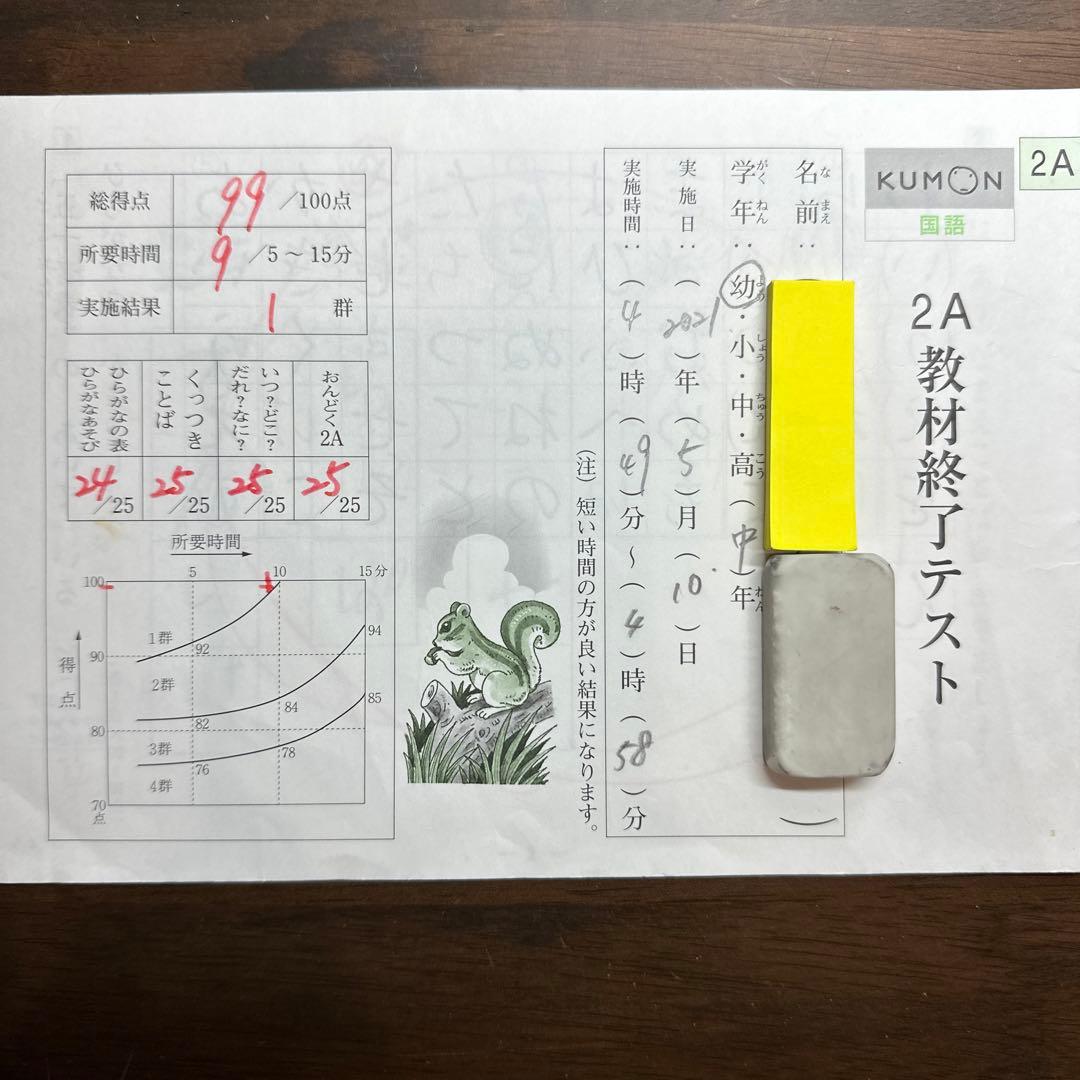 2A
KUMON
国語
2A教材終了テスト
名前:
なまえ
学年: 幼・小・中・高 (中) 年
がくねん よう しょう ちゅう こう ねん
実施日: (2021) 年 (5) 月 (10) 日
実施時間: (4) 時 (49) 分 ~ (4) 時 (58) 分
(注) 短い時間の方が良い結果になります。
総得点 99 /100点
所要時間 9 /5~15分
実施結果 1 群
おんどく2A
25/25
いつ?どこ?
だれ?なに?
25/25
くっつき
ことば
25/25
ひらがなの表
ひらがなあそび
24/25
所要時間
5 10 15分
得点
100
90
80
70
点
1群
2群
3群
4群
92
82
76
84
78
94
85